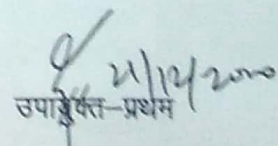 21/12/2000
उपायुक्त-प्रथम